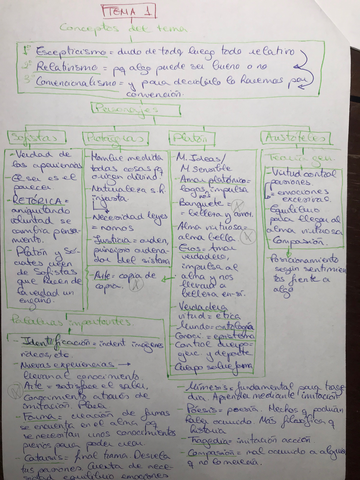 TEMA 1
Conceptos del tema
1º Escepticismo = dudo de todo, luego todo relativo
2º Relativismo = pq algo puede ser bueno o no
3º Convencionalismo = y para decidirlo lo hacemos por
convención.
Personajes
Sofistas
- Verdad de
las apariencias
- El ser es el
parecer
- RETÓRICA =
voluntad se
cambia pensa-
mento.
- Platón y Só-
crates dicen
de Sofistas
que hacen de
la verdad un
engaño
Protágoras
- Hombre medida
todas cosas pq
- Naturaleza s.h
injusta
- Necesidad leyes
= nomos
- Justicia = orden,
del sistema
- Arte = copia de
copia.
Platón
M. Ideas /
M. Sensible
- Amor platónico =
logos, impulsa
- Banquete =
belleza y amor
- Alma virtuosa =
alma bella
- Eros = amor
verdadero,
impulsa al
alma y nos
lleva a
belleza en sí.
- Verdadera
virtud = ética
- Mundo =
- = episteme
- Control cuerpo =
y deporte
- Cuerpo sobre forma
Aristóteles
- Virtud control
pasiones
= emociones
excesivas
- Equilibrio
para llegar al
alma virtuosa
- Compasión
- Posicionamiento
según sentimien-
tos frente a
algo
Palabras importantes
- Identificación = ident imágenes
videos, etc
- Nuevas experiencias
llevan al conocimiento
- Arte = satisface el saber.
- Conocimiento a través de
imitación
- Poiesis = creación de
se encuentra en el alma pq
se necesitan unos conocimientos
previos para poder crear
- Catarsis = final trama. Desvela
tus pasiones. Cuenta de nece-
sidad equilibrio emociones
- Mímesis = fundamental para trage-
dia. Aprender mediante imitación
- Poiesis = poesía. Hechos q podrían
haber ocurrido. Más filosófico q
historia
- Tragedia = imitación acción
- Compasión = mal ocurrido a alguien
q no lo merecía.